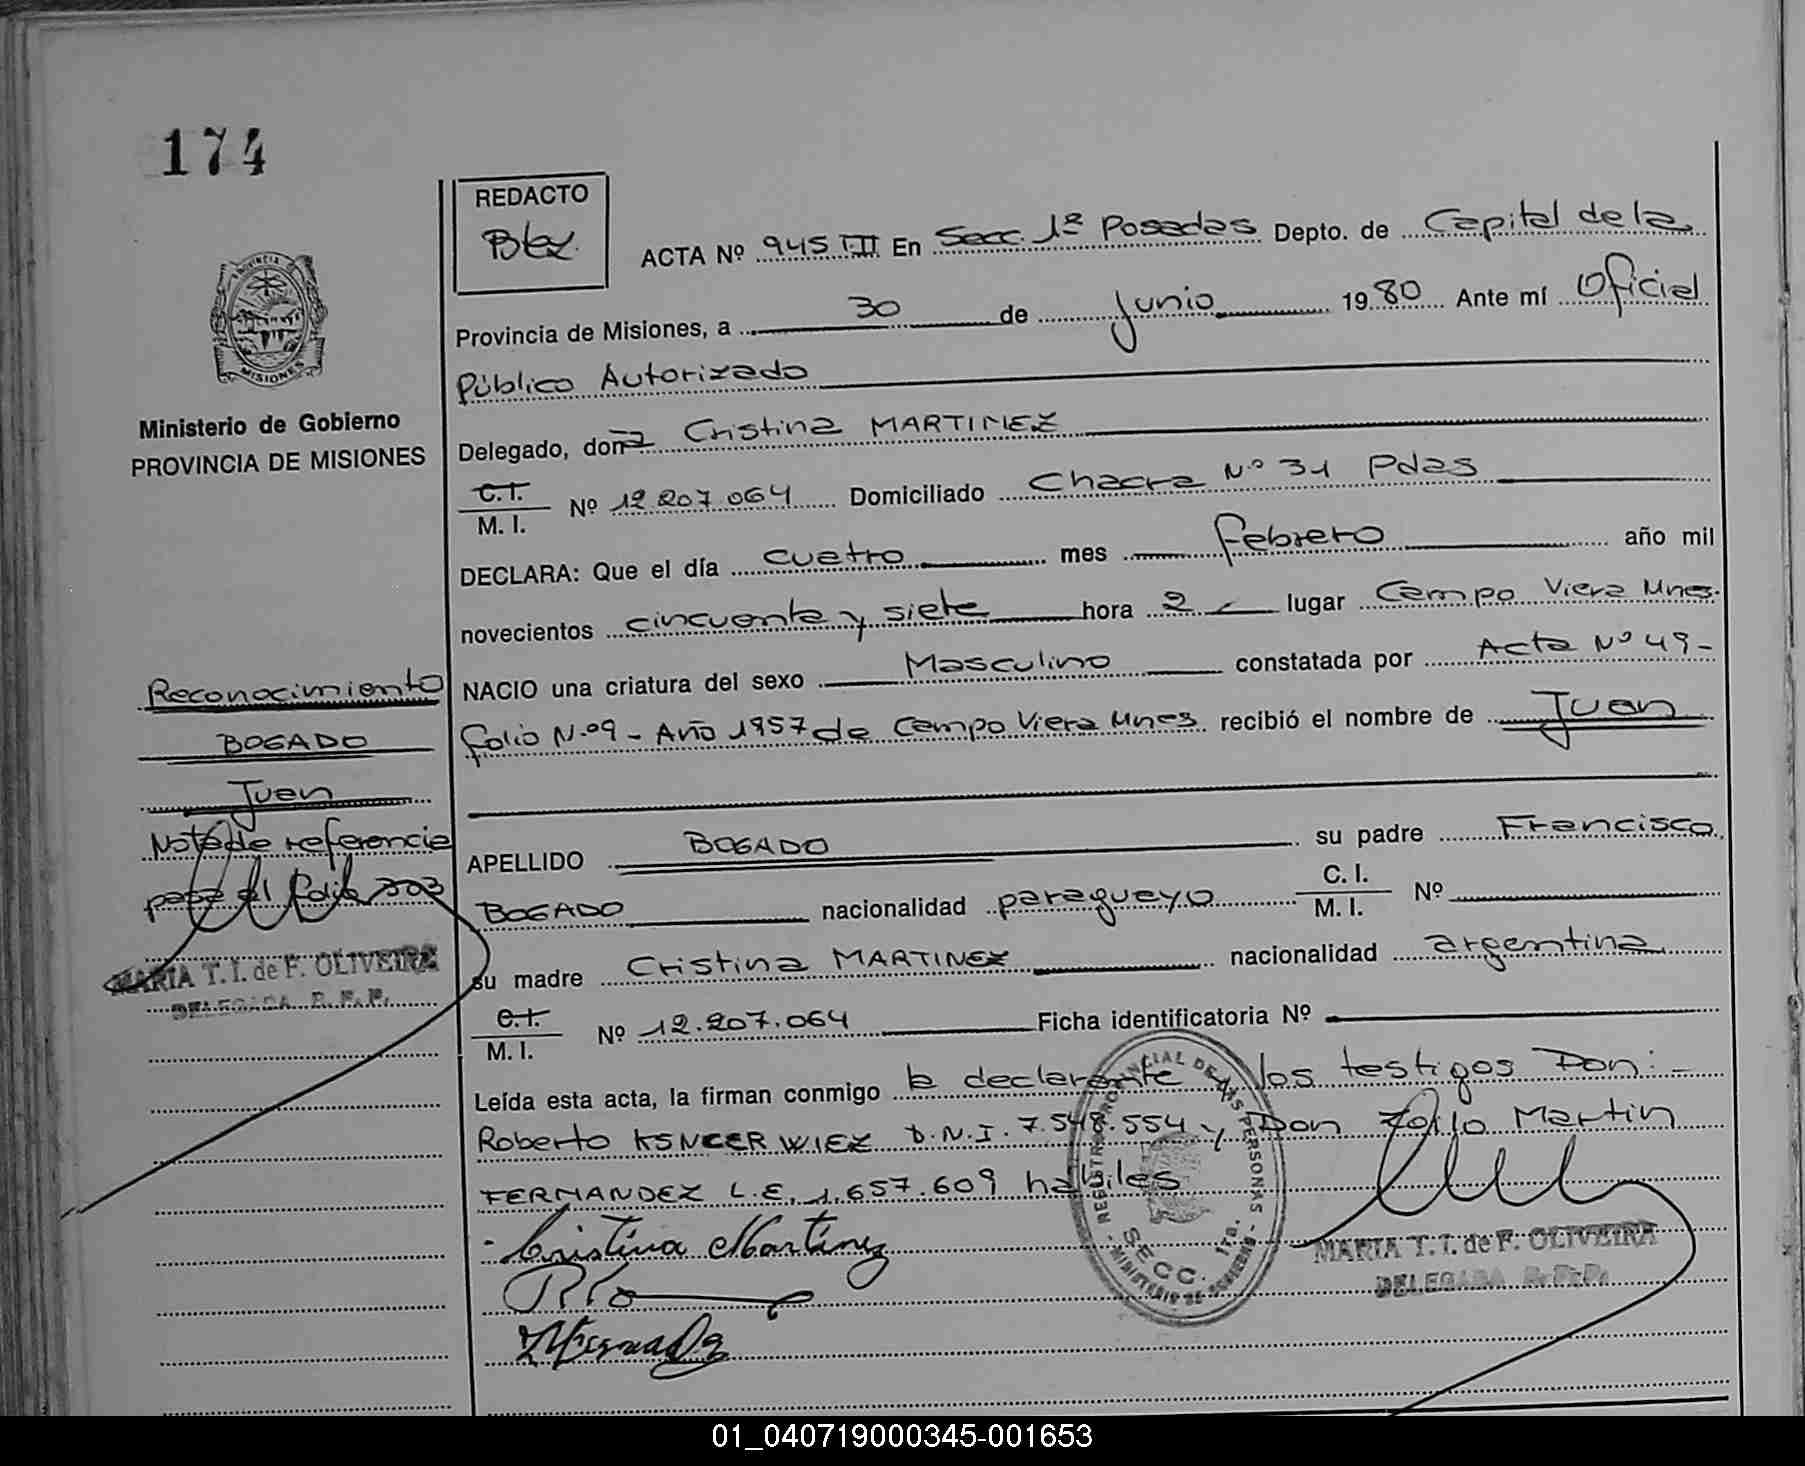 174
REDACTO
ACTA Nº 945 III En Secc. 1ª Posadas Depto. de Capital de la
Provincia de Misiones, a 30 de Junio 1980 Ante mí Oficial
Público Autorizado
Delegado, doña Cristina MARTINEZ
C.I.
M. I. Nº 12.207.064 Domiciliado Chacra Nº 31 Pdas
DECLARA: Que el día cuatro mes febrero año mil
novecientos cincuenta y siete hora 2 lugar Campo Viera Mnes.
NACIO una criatura del sexo Masculino constatada por Acta Nº 49-
folio Nº 9 - Año 1957 de Campo Viera Mnes recibió el nombre de Juan
APELLIDO BOGADO su padre Francisco
BOGADO nacionalidad paraguayo C. I. M. I. Nº
su madre Cristina MARTINEZ nacionalidad argentina
C.I.
M. I. Nº 12.207.064 Ficha identificatoria Nº
Leída esta acta, la firman conmigo la declarante y los testigos Don:-
Roberto D.N.I. 7.548.554 y Don Zoilo Martin
FERNANDEZ L.E. 1.657.609 habiles
Cristina Martinez
REGISTRO PROVINCIAL DE LAS PERSONAS
SECC. 1ra.
MINISTERIO DE GOBIERNO
MARIA T. I. de F. OLIVEIRA
DELEGADA R. P. P.
MISIONES
Ministerio de Gobierno
PROVINCIA DE MISIONES
Reconocimiento
BOGADO
Juan
Nota de referencia
pasa al folio 203
MARIA T. I. de F. OLIVEIRA
DELEGADA R. P. P.
01_040719000345-001653